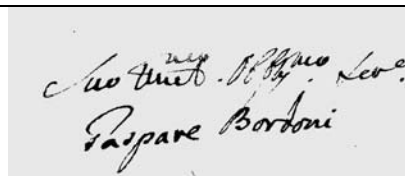 Suo Umil.mo Obb.mo Serv.e
Gaspare Bordoni